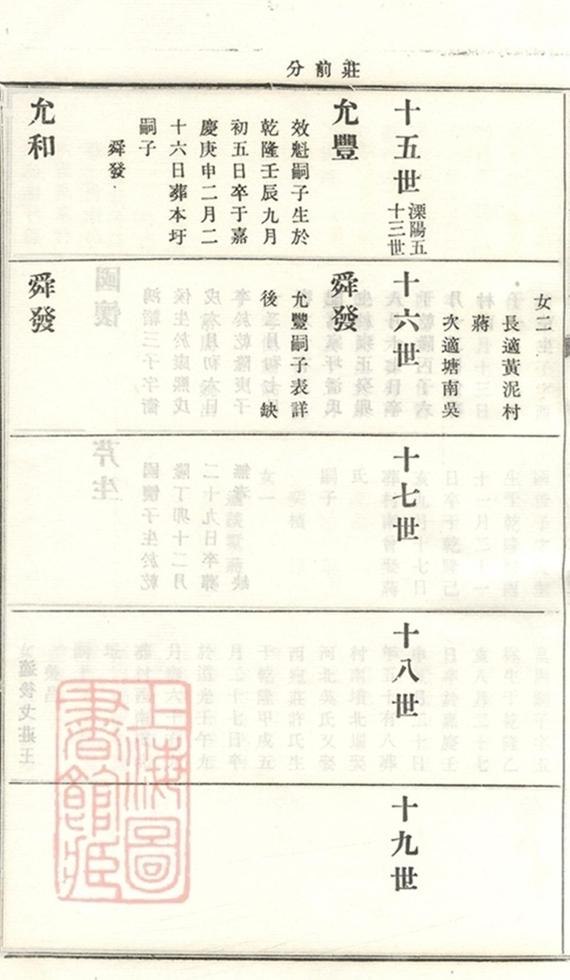 莊前分
十五世
溧陽五
十三世
允豐
效魁嗣子生於
乾隆壬辰九月
初五日卒于嘉
慶庚申二月二
十六日葬本圩
嗣子
舜發
允和
女二
長適黃泥村
蔣
次適塘南吳
十六世
舜發
允豐嗣子表詳
後 缺
舜發
十七世
十八世
十九世
上海圖
書館藏